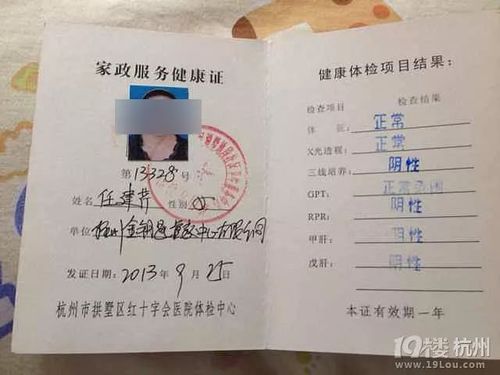 家政服务健康证
第13328号
姓名 任建芹 性别 女
单位
发证日期：2013年9月25日
杭州市拱墅区红十字会医院体检中心
健康体检项目结果：
检查项目 检查结果
体 征： 正常
X光透视： 正常
三线培养： 阴性
GPT： 正常范围
RPR： 阴性
甲肝： 阴性
戊肝： 阴性
本证有效期一年
19楼 杭州
www.19lou.com